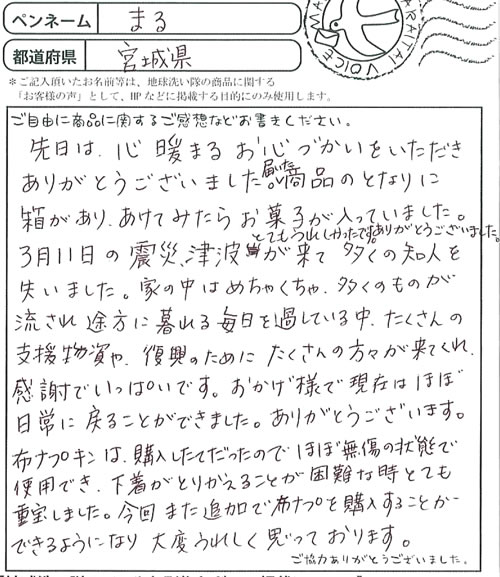 ペンネーム まる
都道府県 宮城県
ARATTAI VOICE
＊ご記入頂いたお名前等は、地球洗い隊の商品に関する
「お客様の声」として、HPなどに掲載する目的にのみ使用します。
ご自由に商品に関するご感想などお書きください。
先日は、心暖まるお心づかいをいただき
ありがとうございました。届いた商品のとなりに
箱があり、あけてみたらお菓子が入っていました。
とてもうれしかったです。ありがとうございました。
3月11日の震災、津波が来て多くの知人を
失いました。家の中はめちゃくちゃ、多くのものが
流され途方に暮れる毎日を過している中、たくさんの
支援物資や、復興のためにたくさんの方々が来てくれ、
感謝でいっぱいです。おかげ様で現在はほぼ
日常に戻ることができました。ありがとうございます。
布ナプキンは、購入したてだったのでほぼ無傷の状態で
使用でき、下着がとりかえることが困難な時とても
重宝しました。今回また追加で布ナプを購入することが
できるようになり大変うれしく思っております。
ご協力ありがとうございました。